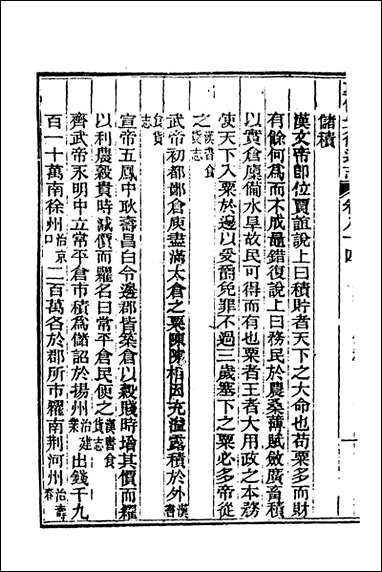 儲積
漢文帝即位賈誼說上曰積貯者天下之大命也苟粟多而財
有餘何為而不成鼂錯復說上曰務民於農桑薄賦斂廣畜積
以實倉廩備水旱故民可得而有也粟者王者大用政之本務
使天下入粟於邊以受爵免罪不過三歲塞下之粟必多帝從
之漢書食貨志
武帝初都鄙倉庾盡滿太倉之粟陳陳相因充溢露積於外漢書
食貨志
宣帝五鳳中耿壽昌白令邊郡皆築倉以穀賤時增其價而糴
以利農穀貴時減價而糶名曰常平倉民便之漢書食貨志
齊武帝永明中立常平倉市積為儲詔於揚州治建業出錢千九
百一十萬南徐州治京口二百萬各於郡所市糴南荆河州治壽春